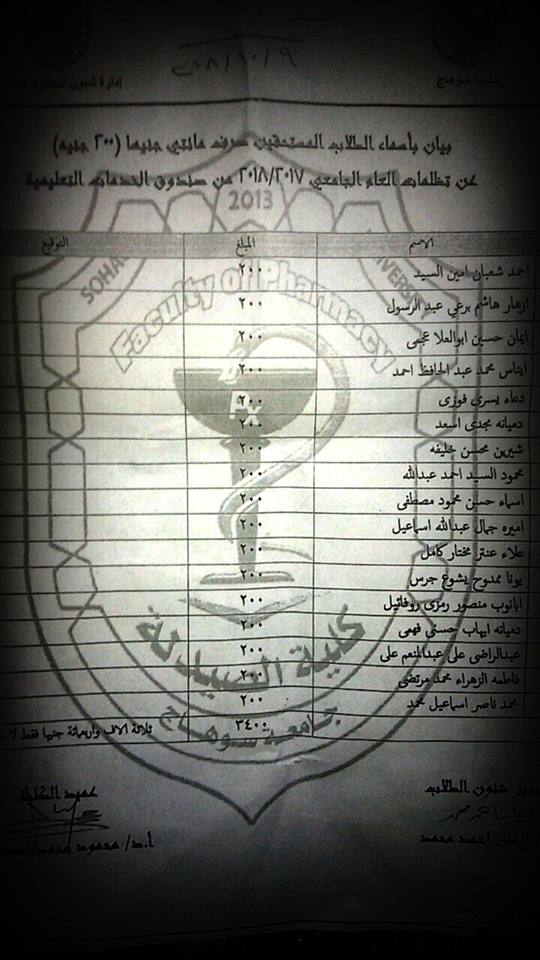 جامعة سوهاج
إدارة شئون
٢٠١٨/١٠/٩
بيان بأسماء الطلاب المستحقين صرف مائتي جنيها (٢٠٠ جنيه)
عن تظلمات العام الجامعي ٢٠١٨/٢٠١٧ من صندوق الخدمات التعليمية
2013
Faculty of Pharmacy
الاسم المبلغ التوقيع
احمد شعبان امين السيد ٢٠٠
ازهار هاشم برعي عبد الرسول ٢٠٠
ايمان حسين ابوالعلا عجمى ٢٠٠
ايناس محمد عبد الحافظ احمد ٢٠٠
دعاء يسرى فوزى ٢٠٠
دميانه مجدى اسعد ٢٠٠
شيرين محسن خليفه ٢٠٠
محمود السيد احمد عبدالله ٢٠٠
اسماء حسن محمود مصطفى ٢٠٠
اميره جمال عبدالله اسماعيل ٢٠٠
علاء عنتر مختار كامل ٢٠٠
يونا ممدوح يشوع جرس ٢٠٠
ابانوب منصور رمزى روفائيل ٢٠٠
دميانه ايهاب حسنى فهمى ٢٠٠
عبدالراضى على عبدالمنعم على ٢٠٠
فاطمه الزهراء محمد مرتضى ٢٠٠
محمد ناصر اسماعيل محمد ٢٠٠
٣٤٠٠ ثلاثة الاف واربعمائة جنيها فقط لا
كلية الصيدلة
جامعة سوهاج
شئون الطلاب عميد الكلية
ايمان احمد محمد أ.د/ محمود محمد